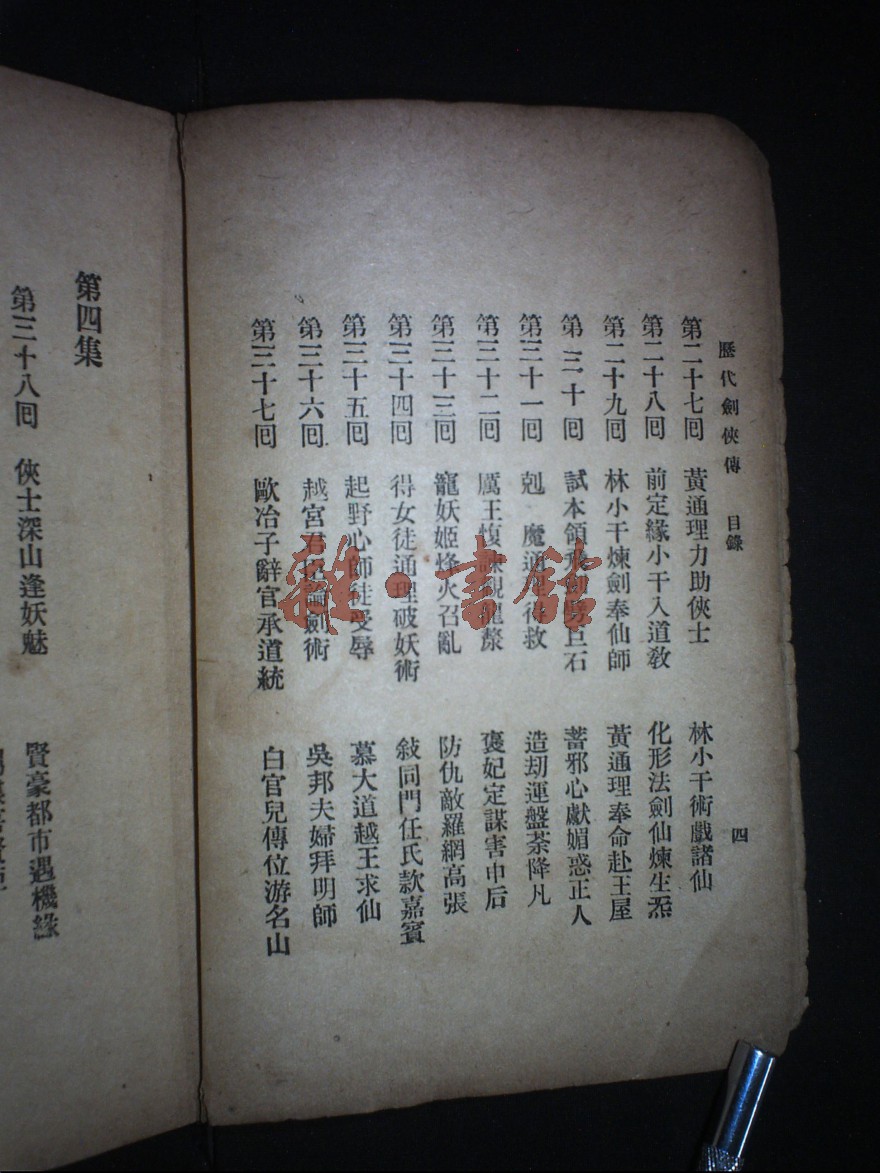 歷代劍俠傳　目錄　四
第二十七囘　黃通理力助俠士　林小干術戲諸仙
第二十八囘　前定緣小干入道敎　化形法劍仙煉生炁
第二十九囘　林小干煉劍奉仙師　黃通理奉命赴王屋
第三十囘　試本領飛劍劈巨石　蓄邪心獻媚惑正人
第三十一囘　剋　魔通理得救　造刧運盤荼降凡
第三十二囘　厲王愎諫觀龍漦　褒妃定謀害申后
第三十三囘　寵妖姬烽火召亂　防仇敵羅網高張
第三十四囘　得女徒通理破妖術　敍同門任氏款嘉賓
第三十五囘　起野心師徒受辱　慕大道越王求仙
第三十六囘　越宮君臣論劍術　吳邦夫婦拜明師
第三十七囘　歐冶子辭官承道統　白官兒傳位游名山
第四集
第三十八囘　俠士深山逢妖魅　賢豪都市遇機緣
雜·書館